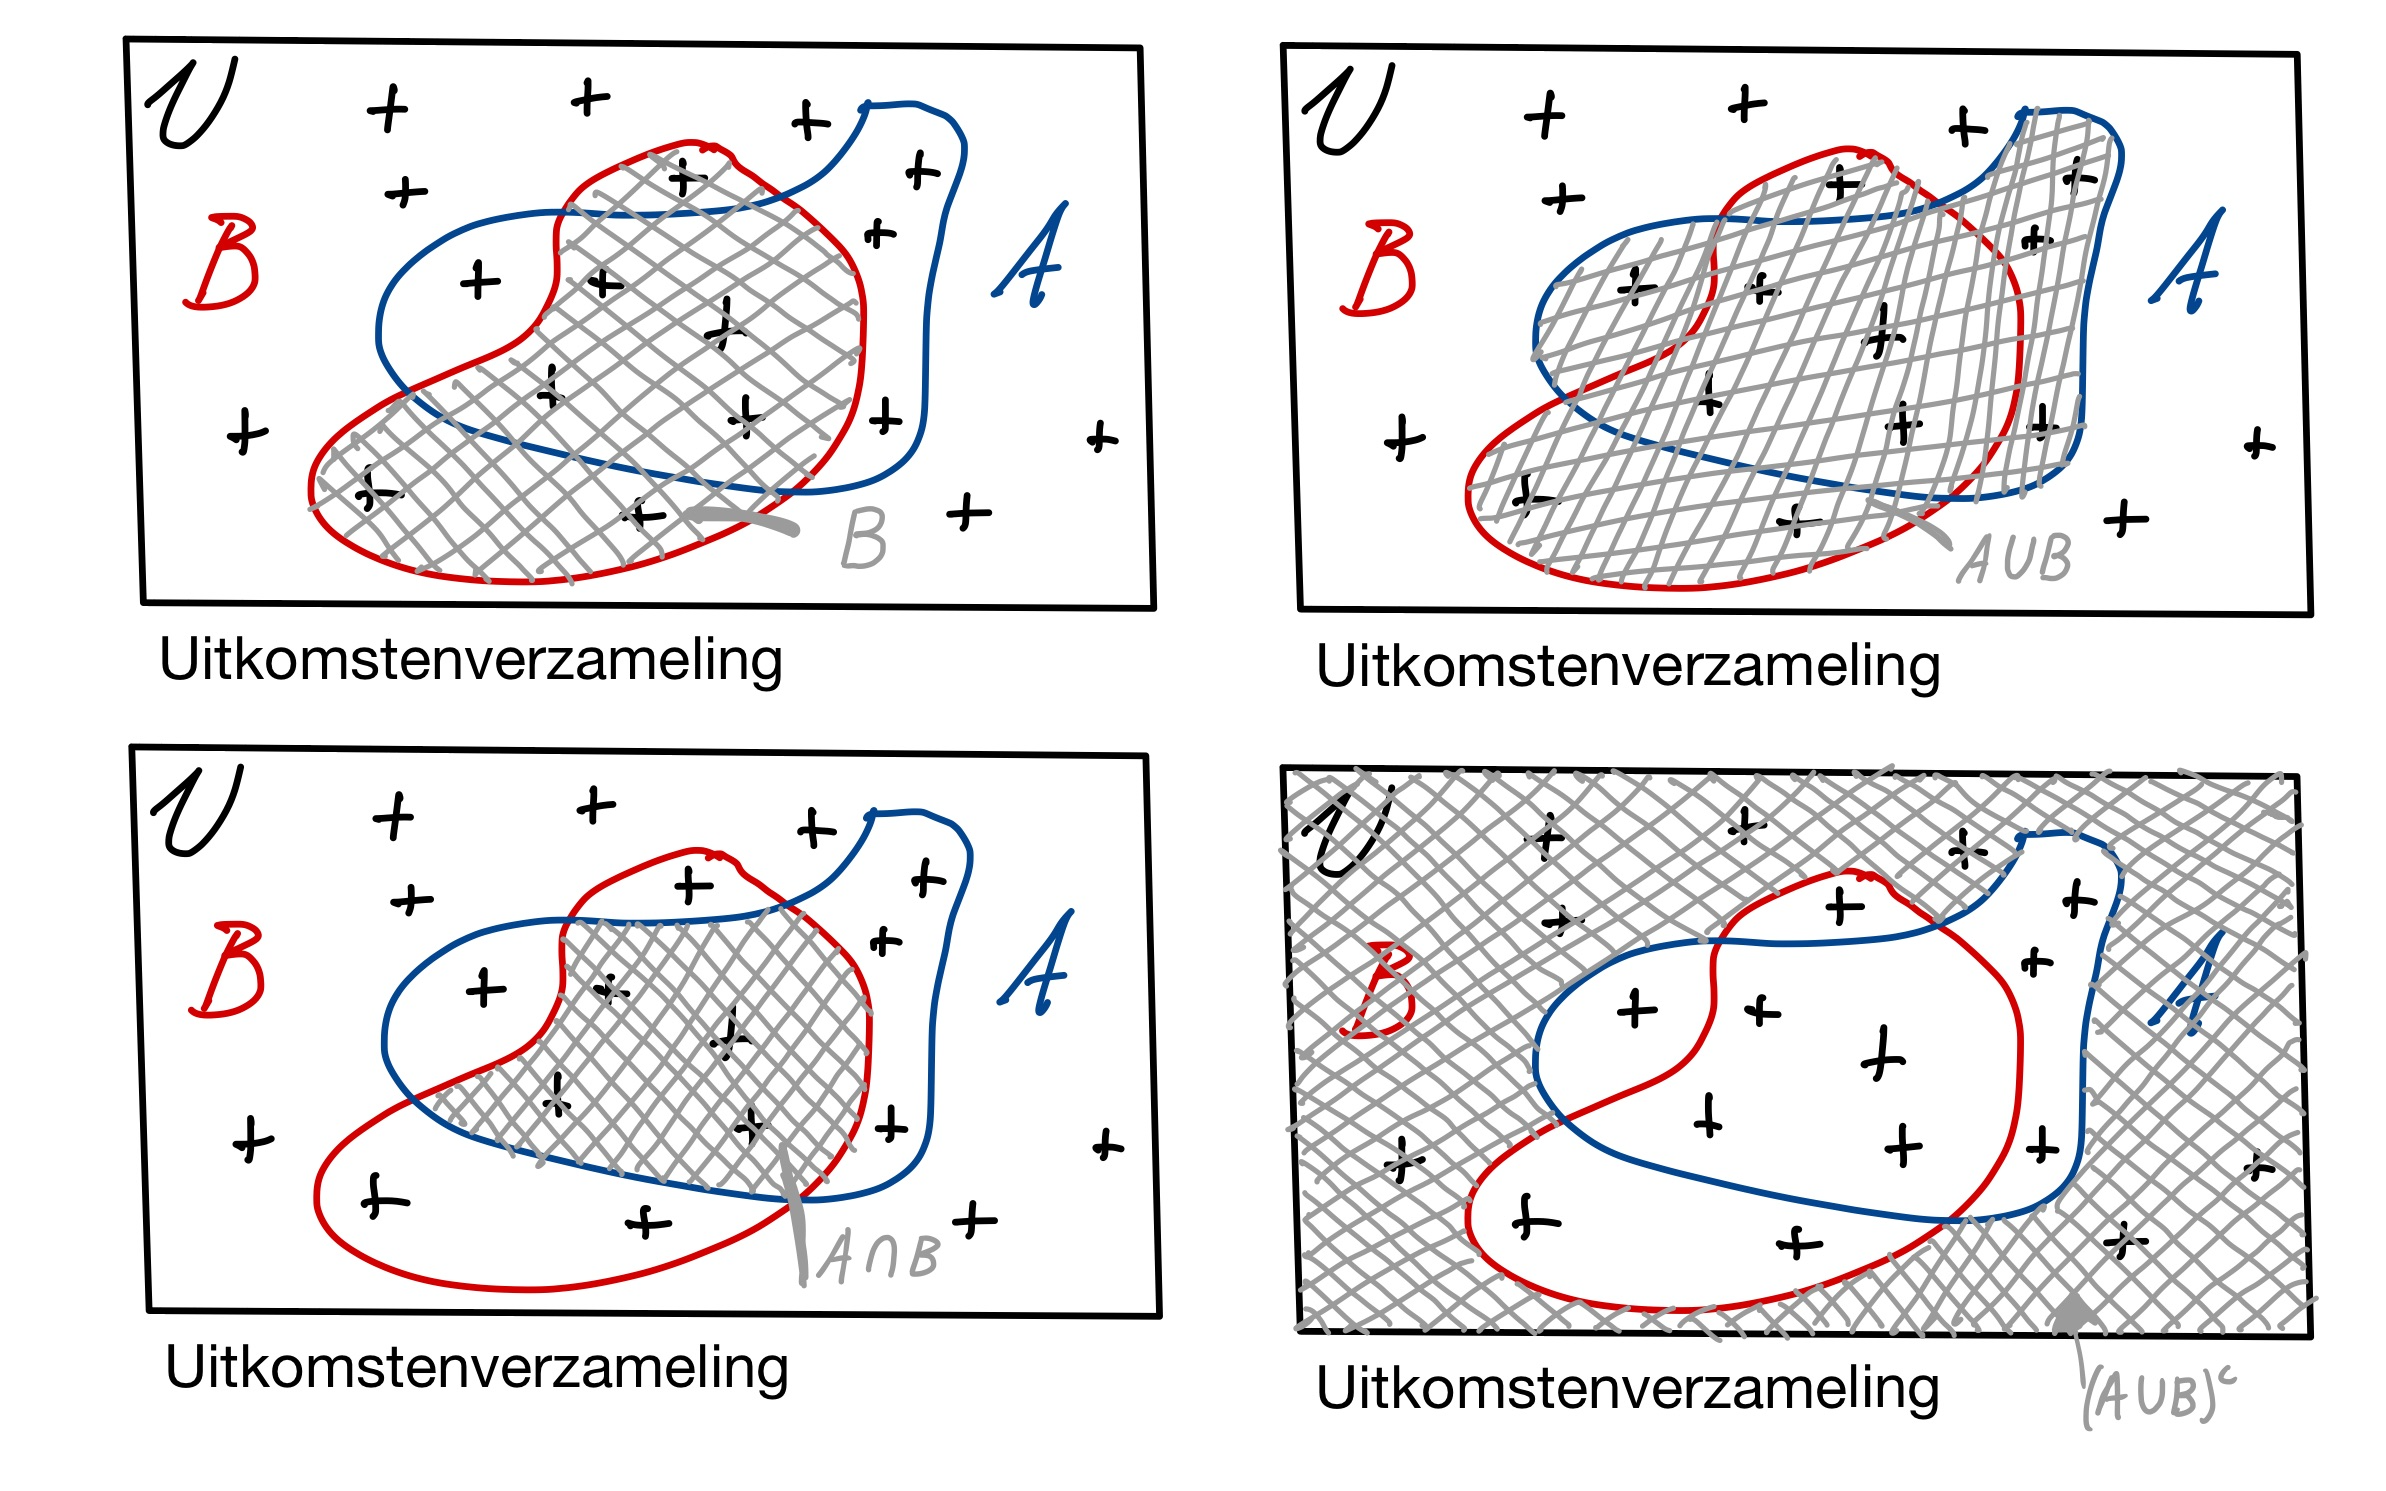 U
B
A
B
Uitkomstenverzameling
U
B
A
A∪B
Uitkomstenverzameling
U
B
A
A∩B
Uitkomstenverzameling
U
B
A
Uitkomstenverzameling
(A∪B)ᶜ